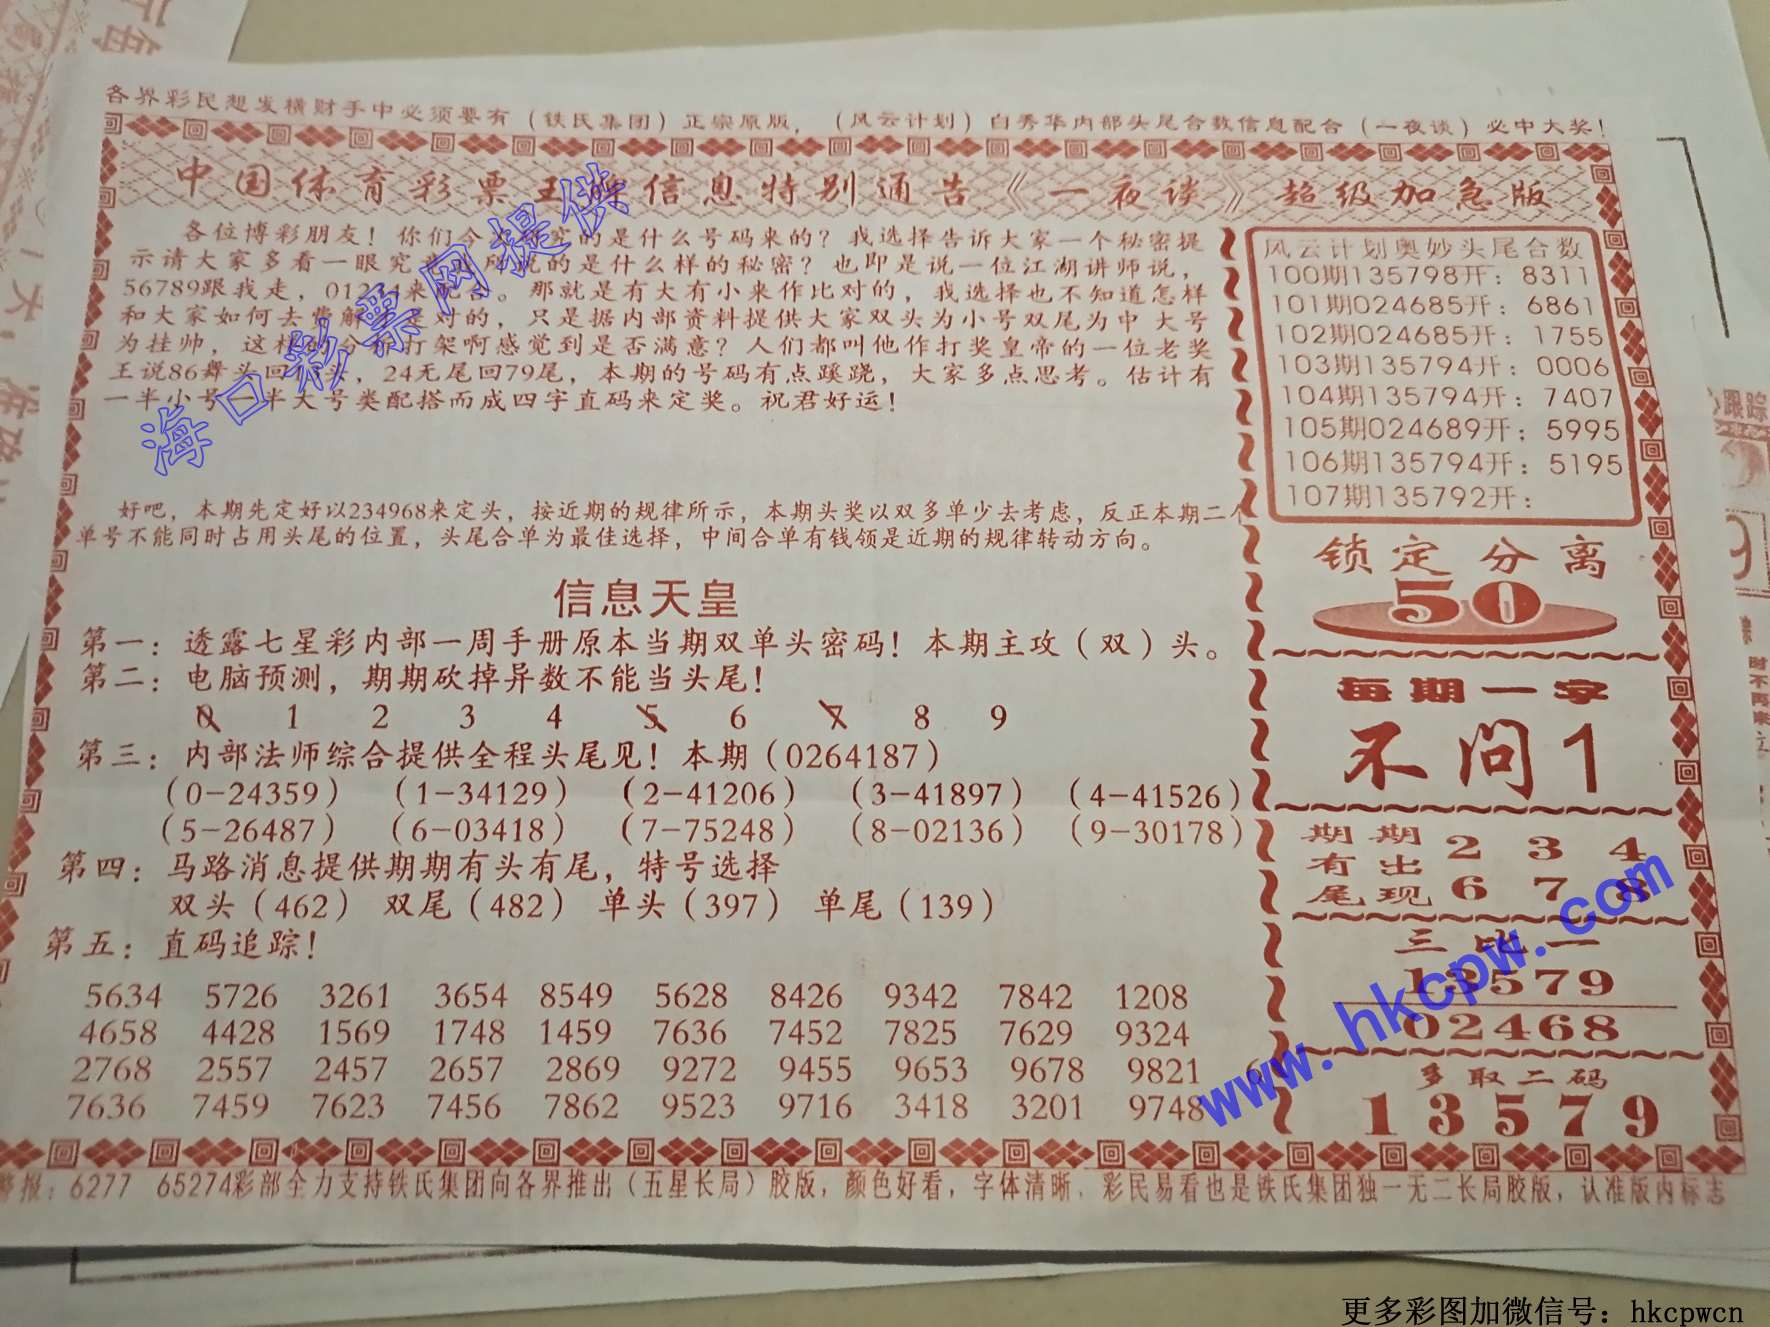 各界彩民想发横财手中必须要有（铁氏集团）正宗原版，（风云计划）白秀华内部头尾合数信息配合（一夜谈）必中大奖！
中国体育彩票王牌信息特别通告《一夜谈》超级加急版
各位博彩朋友！你们今
的是什么号码来的？我选择告诉大家一个秘密提
示请大家多看一眼究
的是什么样的秘密？也即是说一位江湖讲师说，
56789跟我走，01234来配合。那就是有大有小来作比对的，我选择也不知道怎样
和大家如何去费解
是对的，只是据内部资料提供大家双头为小号双尾为中 大号
为挂帅，这样的分析打架啊感觉到是否满意？人们都叫他作打奖皇帝的一位老奖
王说86舞头回
头，24无尾回79尾，本期的号码有点蹊跷，大家多点思考。估计有
一半小号一半大号类配搭而成四字直码来定奖。祝君好运！
好吧，本期先定好以234968来定头，按近期的规律所示，本期头奖以双多单少去考虑，反正本期二个
单号不能同时占用头尾的位置，头尾合单为最佳选择，中间合单有钱领是近期的规律转动方向。
信息天皇
第一：透露七星彩内部一周手册原本当期双单头密码！本期主攻（双）头。
第二：电脑预测，期期砍掉异数不能当头尾！
0 1 2 3 4 5 6 7 8 9
第三：内部法师综合提供全程头尾见！本期（0264187）
（0-24359） （1-34129） （2-41206） （3-41897） （4-41526）
（5-26487） （6-03418） （7-75248） （8-02136） （9-30178）
第四：马路消息提供期期有头有尾，特号选择
双头（462） 双尾（482） 单头（397） 单尾（139）
第五：直码追踪！
5634 5726 3261 3654 8549 5628 8426 9342 7842 1208
4658 4428 1569 1748 1459 7636 7452 7825 7629 9324
2768 2557 2457 2657 2869 9272 9455 9653 9678 9821
7636 7459 7623 7456 7862 9523 9716 3418 3201 9748
风云计划奥妙头尾合数
100期135798开：8311
101期024685开：6861
102期024685开：1755
103期135794开：0006
104期135794开：7407
105期024689开；5995
106期135794开：5195
107期135792开：
锁定分离
50
每期一字
不问1
期期 2 3 4
有出
尾现 6 7 8
三比一
13579
02468
多取二码
13579
警报：6277 65274彩部全力支持铁氏集团向各界推出（五星长局）胶版，颜色好看，字体清晰，彩民易看也是铁氏集团独一无二长局胶版，认准版内标志
海口彩票网提供
www.hkcpw.com
跟踪
时不再来
更多彩图加微信号：hkcpwcn